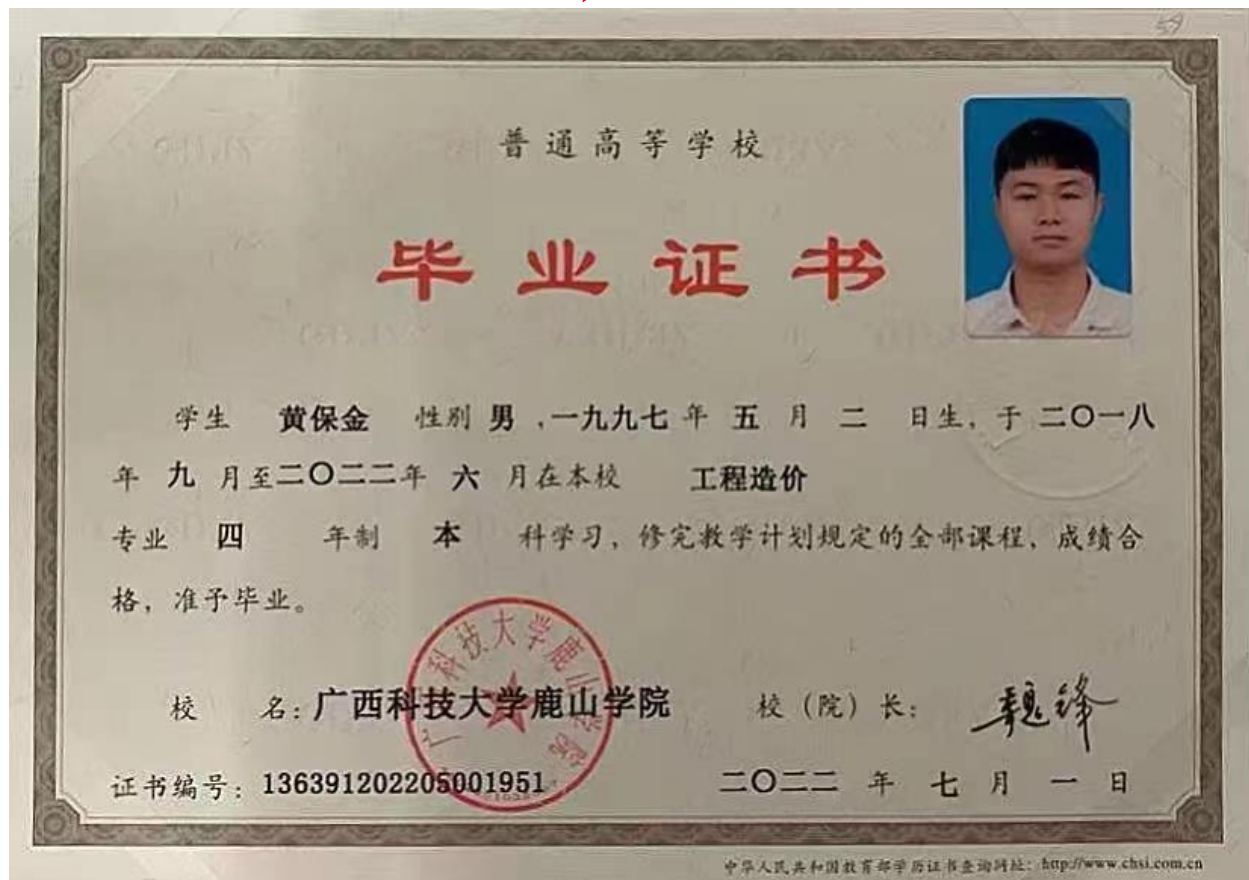 59
普通高等学校
毕业证书
学生 黄保金 性别 男 ,一九九七 年 五 月 二 日生, 于 二〇一八
年 九 月至二〇二二年 六 月在本校 工程造价
专业 四 年制 本 科学习, 修完教学计划规定的全部课程, 成绩合
格, 准予毕业。
广西科技大学鹿山学院
校 名: 广西科技大学鹿山学院 校（院）长: 魏锋
证书编号: 136391202205001951 二〇二二 年 七 月 一 日
中华人民共和国教育部学历证书查询网址: http://www.chsi.com.cn